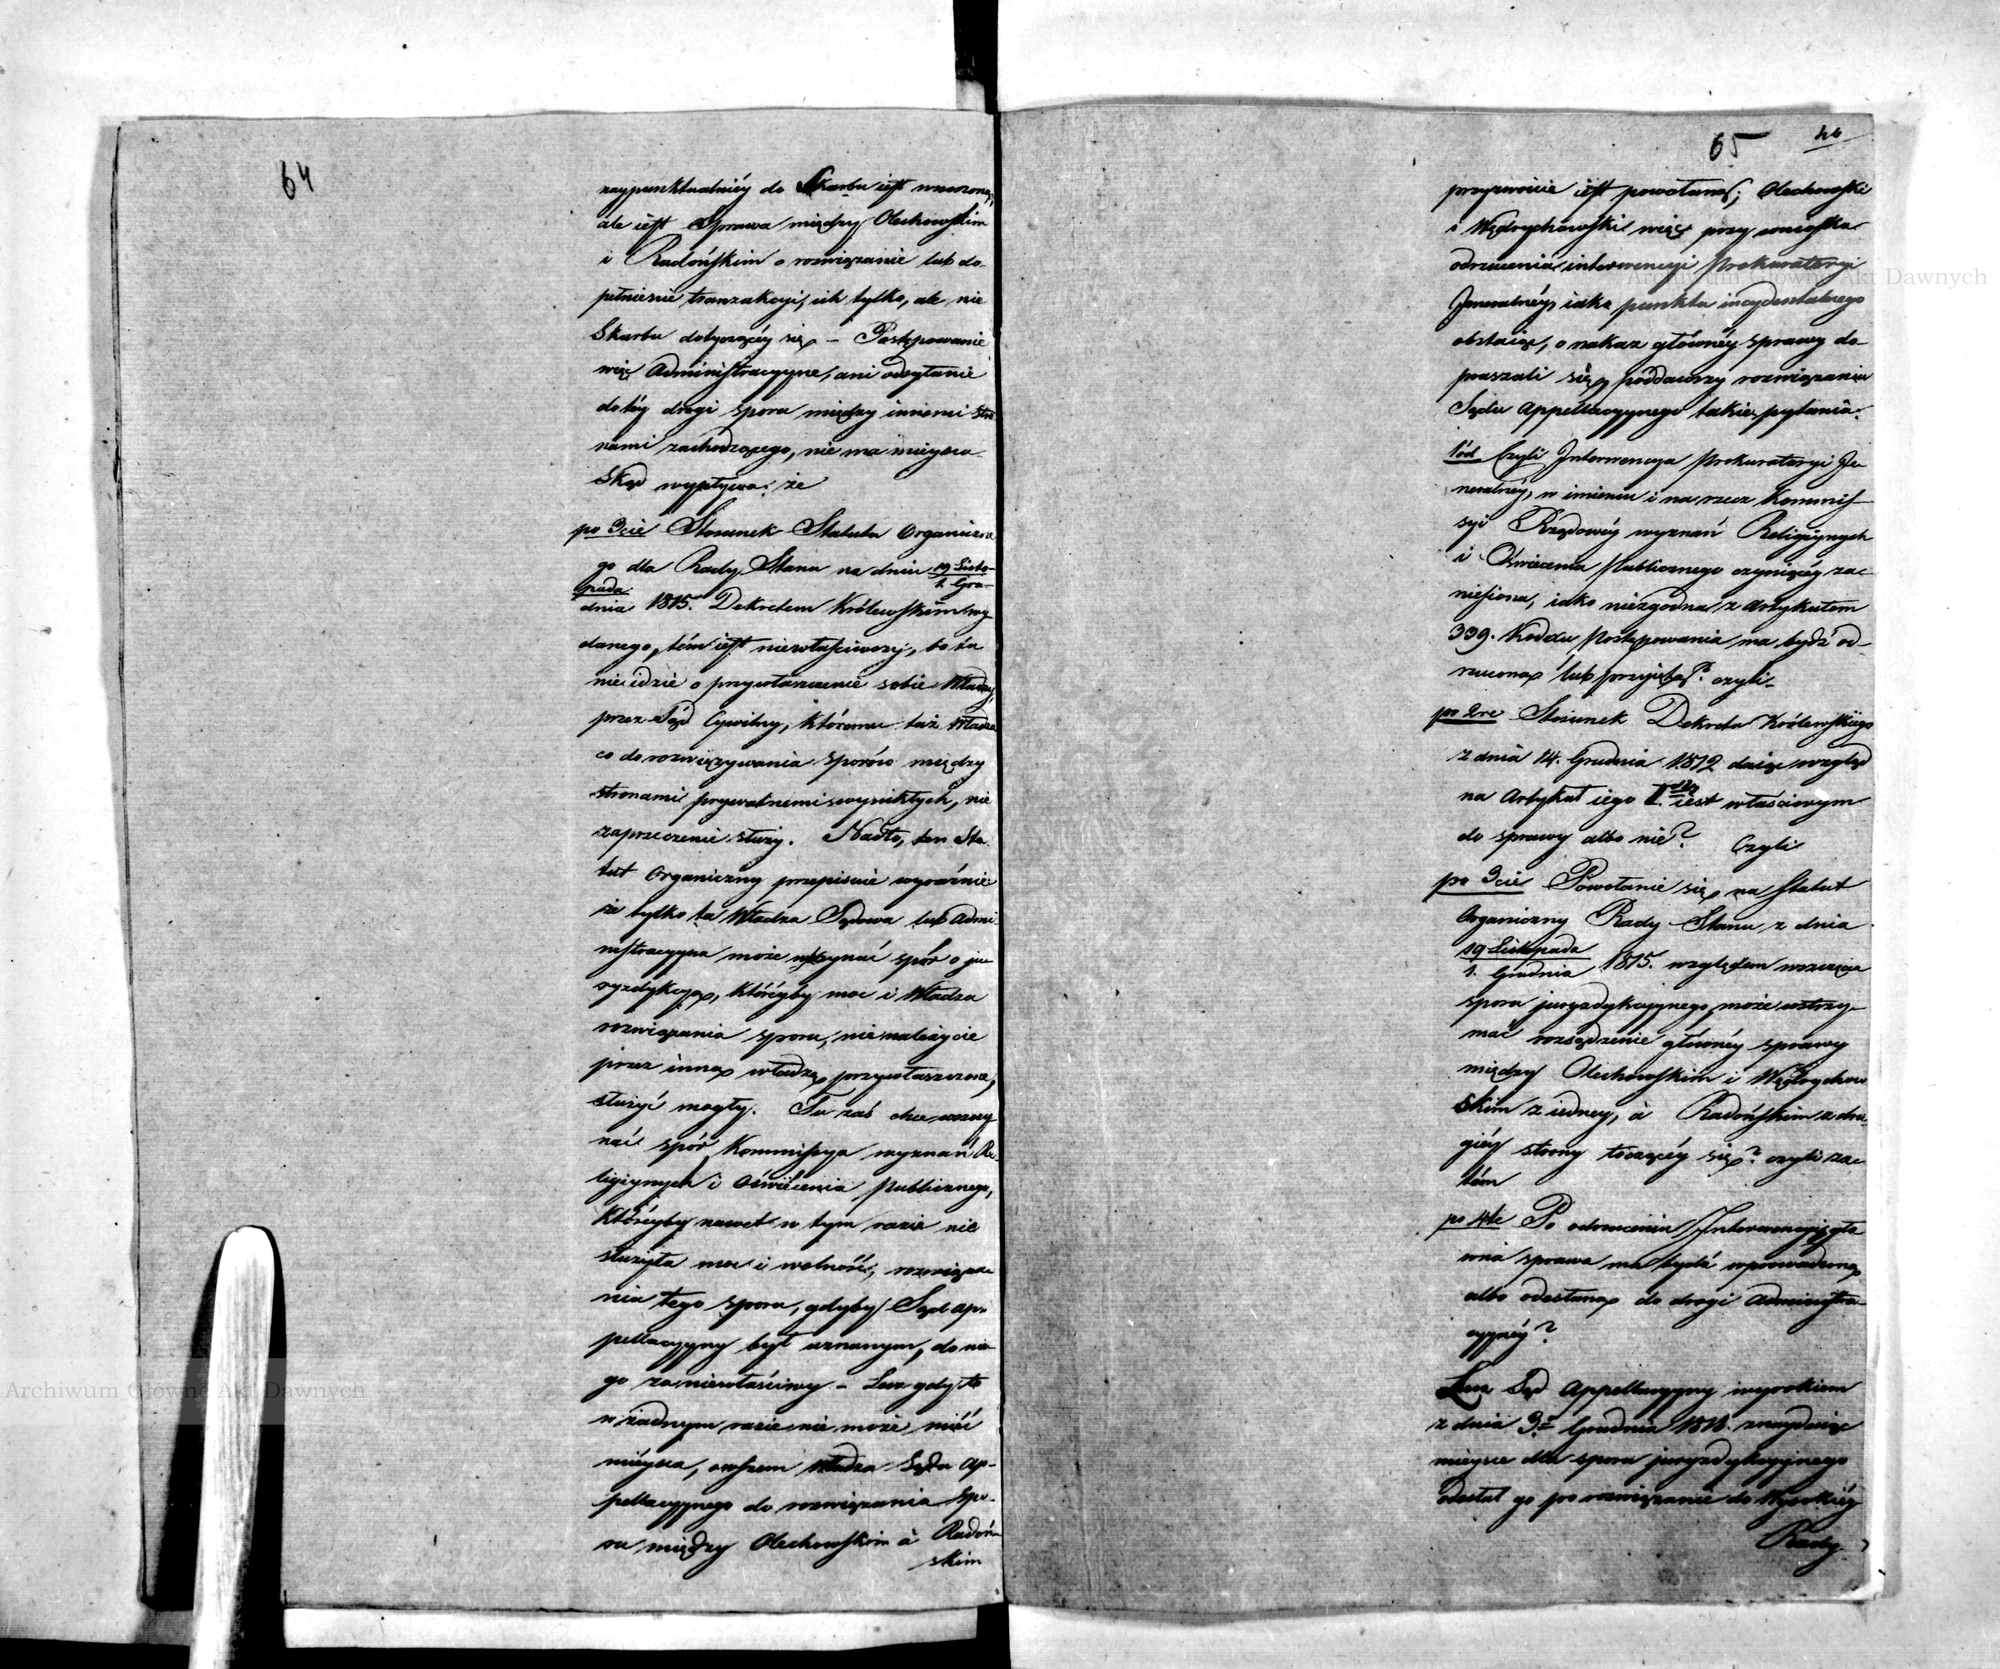 64
naypunktualniéy do Skarbu iest wnoszoną,
ale iest Sprawa między Olechowskim
i Radońskim o rozwiązanie lub do-
pełnienie tranzakcyi, ich tylko, ale nie
Skarbu dotyczącéy się – Postępowanie
więc Administracyyne, ani odsyłanie
do téy drogi sporu między innemi Stro
nami zachodzącego, nie ma mieysca
Skąd wypływa: że
po 3cie Stosunek Statutu Organiczne
go dla Rady Stanu na dniu 19 Listo-
pada
1. Gru-
dnia 1815. Dekretem Królewskim wy
danego, tém iest niewłaściwszy, bo tu
nie idzie o przywłaszczenie sobie Władzy,
przez Sąd Cywilny, któremu taż Władza
co do rozwięzywania sporów między
stronami prywatnemi wynikłych, nie
zaprzeczenie służy. Nadto, ten Sta
tut Organiczny przepisuie wyraźnie
że tylko ta Władza Sądowa lub Admi
nistracyyna może wszcynać spór o ju
ryzdykcyą, któréyby moc i Władza
rozwiązania sporu, nienależycie
przez inną władzę przywłaszczone,
służyć mogły. Tu zaś chce wszczy
nać spór Kommissya wyznań Re-
ligiynych i Oświecenia Publicznego,
któréyby nawet w tym razie nie
służyła moc i wolność, rozwiąza
nia tego sporu, gdyby Sąd Ap-
pellacyyny był uznanym, do nie-
go za niewłaściwy – Lecz gdy to
w żadnym razie nie może mieć
miéysca, owszem władza Sądu Ap-
pellacyynego do rozwiązania Spo-
ru między Olechowskim à Radoń-
skim
65
przyzwoicie iest powołaną; Olechowski
i Wędrychowski więc przy wniosku
odrzucenia interwencyi Prokuratoryi
Jeneralnéy, iako punktu incydentalnego
obstaiąc, o nakaz głównéy sprawy do-
praszali się, poddawszy rozwiązaniu
Sądu Appellacyynego takie pytania:
1öd Czyli Interwencya Prokuratoryi Je-
neralnéy, w imieniu i na rzecz Kommis-
syi Rządowéy wyznań Religiynych
i Oświecenia Publicznego czyniącéy za-
niesiona, iako niezgodna z Artykułem
339. Kodexu Postępowania ma bydź od-
rzuconą lub przyiętą? czyli
po 2re Stosunek Dekretu Królewskiego
z dnia 14. Grudnia 1812 daiąc wzgląd
na Artykuł iego I. iest właściwym
do sprawy albo nie? Czyli
po 3cie Powołanie się na Statut
Organiczny Rady Stanu z dnia
19 Listopada
1. Grudnia 1815. względem wszczęcia
sporu juryzdykcyynego, może wstrzy-
mać rozsądzenie głównéy sprawy
między Olechowskim i Wędrychow
skim z iedney, à Radońskim z dru
giéy strony toczącéy się? czyli za-
tém
po 4te Po odrzuceniu Interwencyi głó
wna sprawa ma bydź wprowadzoną
albo odesłaną do drogi Administra-
cyynéy?
Lecz Sąd Appellacyyny wyrokiem
z dnia 3. Grudnia 1818. znayduiąc
mieysce dla sporu juryzdykcyynego
odesłał go po rozwiązanie do Wysokiéy
Rady
Archiwum Główne Akt Dawnych
Archiwum Główne Akt Dawnych